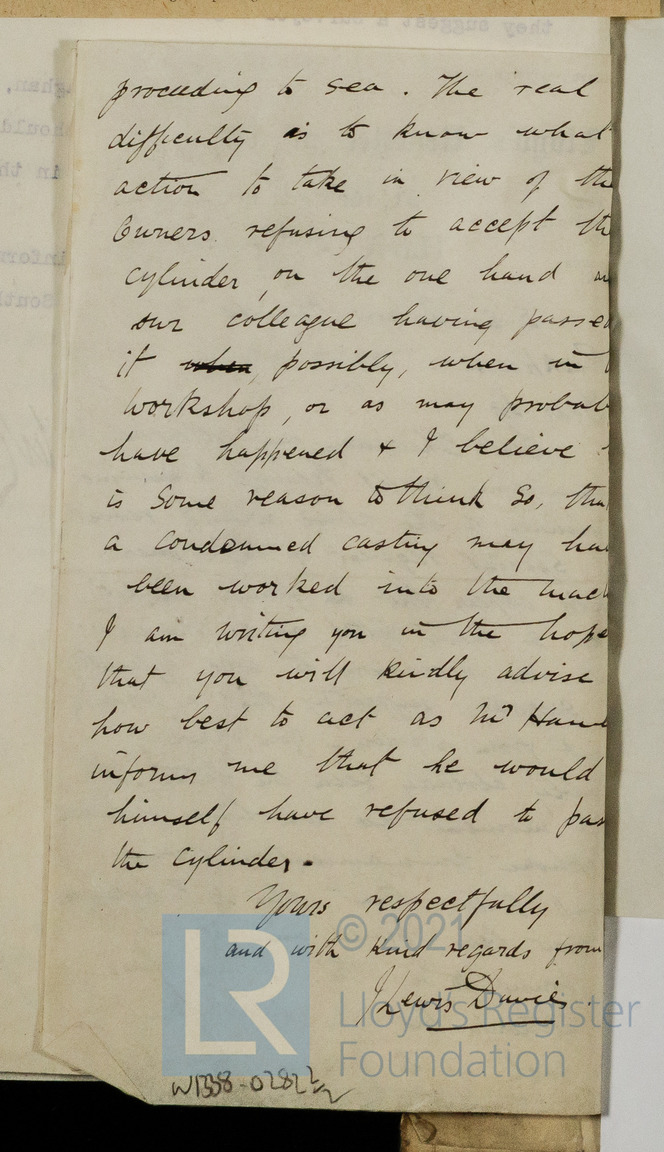 they suggest a
proceeding to sea. The real
difficulty is to know what
action to take in view of the
Owners refusing to accept th
cylinder, on the one hand
our colleague having passed
it when, possibly, when in
workshop, or as may probab
have happened & I believe
is some reason to think so, tha
a condemned casting may ha
been worked into the mach
I am writing you in the hope
that you will kindly advise
how best to act as Mr Han
informs me that he would
himself have refused to pas
the cylinder.
Yours respectfully
and with kind regards from
J Lewis Davies
© 2021
LR
Lloyd's Register
Foundation
W1338-0282 1/2